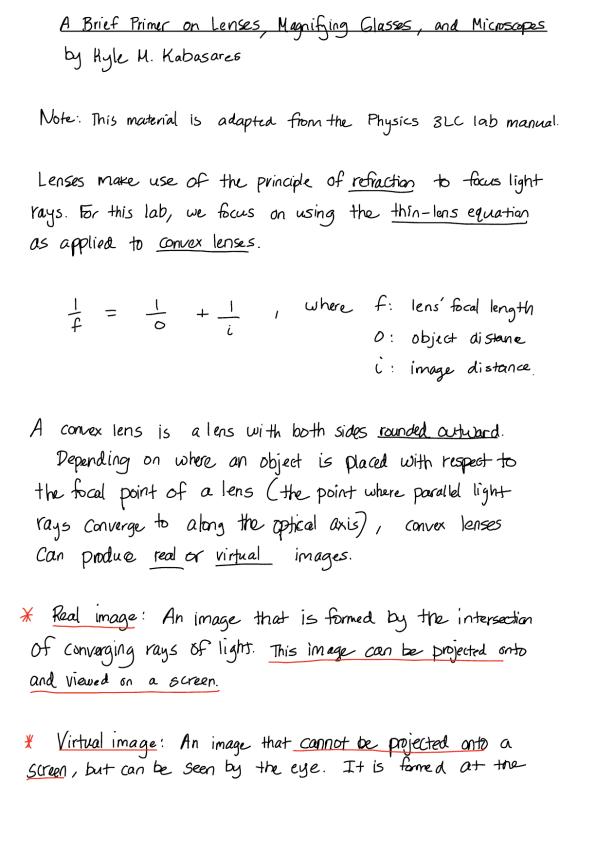 A Brief Primer on Lenses, Magnifying Glasses, and Microscopes
by Kyle M. Kabasares
Note: This material is adapted from the Physics 3LC lab manual.
Lenses make use of the principle of refraction to focus light
rays. For this lab, we focus on using the thin-lens equation
as applied to convex lenses.
1/f = 1/o + 1/i , where f: lens' focal length
o: object distane
i: image distance.
A convex lens is a lens with both sides rounded outward.
Depending on where an object is placed with respect to
the focal point of a lens (the point where parallel light
rays converge to along the optical axis), convex lenses
can produce real or virtual images.
* Real image: An image that is formed by the intersection
of converging rays of light. This image can be projected onto
and viewed on a screen.
* Virtual image: An image that cannot be projected onto a
screen, but can be seen by the eye. It is formed at the